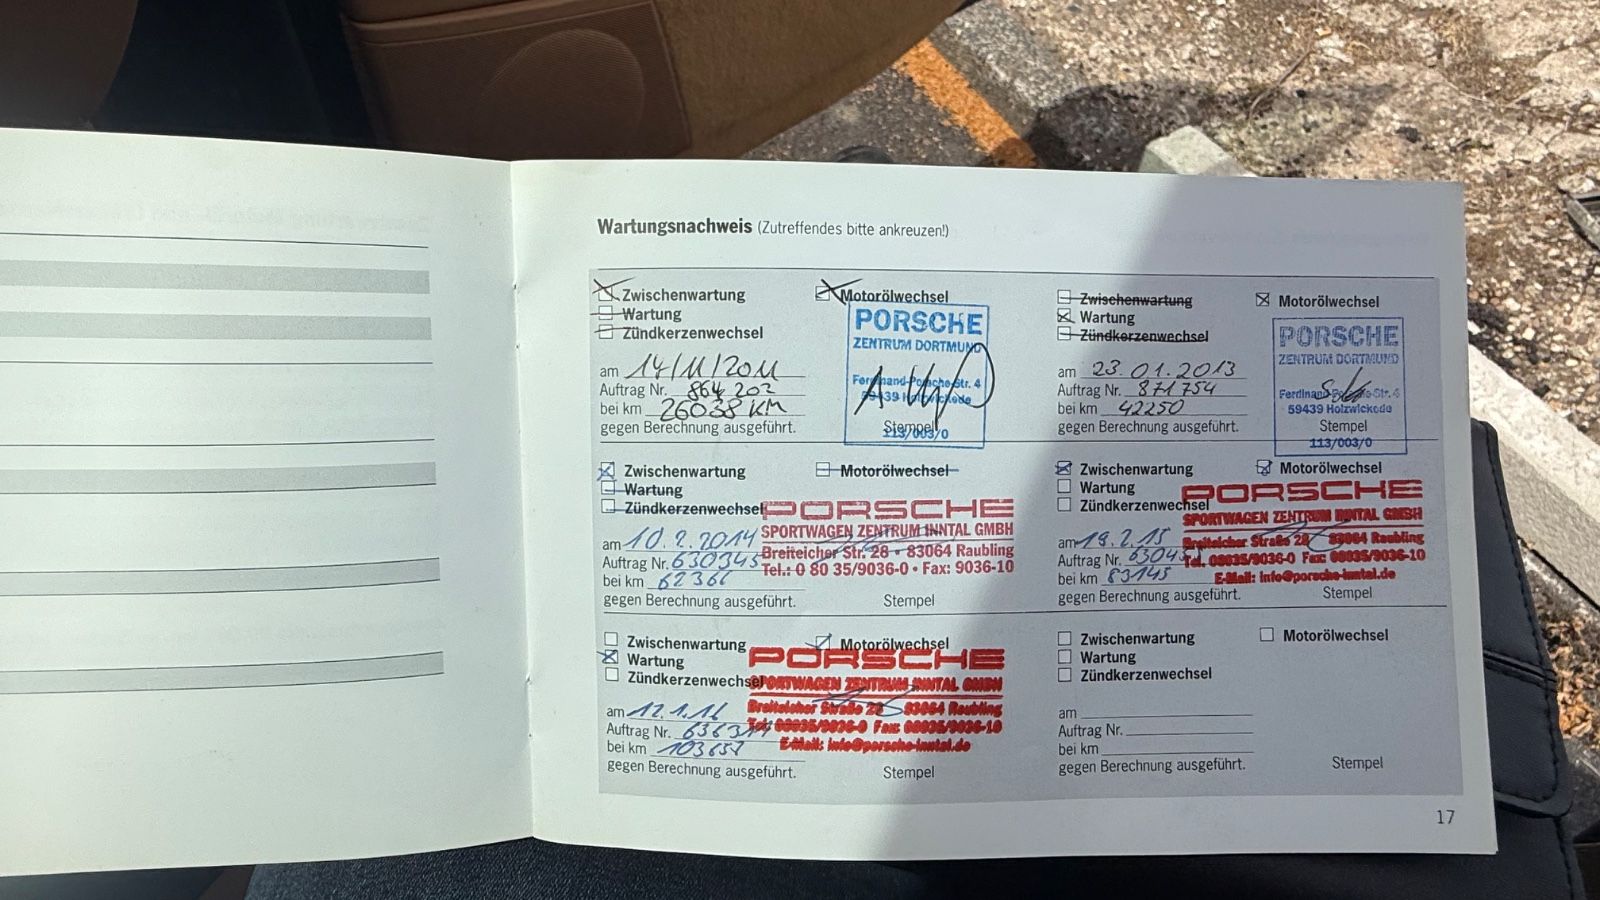 Wartungsnachweis (Zutreffendes bitte ankreuzen!)
Zwischenwartung Motorölwechsel
Wartung
Zündkerzenwechsel
PORSCHE
ZENTRUM DORTMUND
Ferdinand-Porsche-Str. 4
59439 Holzwickede
am 14/11/2011
Auftrag Nr. 864 202
bei km 26038 KM
gegen Berechnung ausgeführt. Stempel
113/003/0
Zwischenwartung Motorölwechsel
Wartung
Zündkerzenwechsel
PORSCHE
ZENTRUM DORTMUND
Ferdinand-Porsche-Str. 4
59439 Holzwickede
am 23.01.2013
Auftrag Nr. 871754
bei km 42250
gegen Berechnung ausgeführt. Stempel
113/003/0
Zwischenwartung Motorölwechsel
Wartung
Zündkerzenwechsel
PORSCHE
SPORTWAGEN ZENTRUM INNTAL GMBH
Breiteicher Str. 28 • 83064 Raubling
Tel.: 0 80 35/9036-0 • Fax: 9036-10
am 10.2.2014
Auftrag Nr. 630345
bei km 62366
gegen Berechnung ausgeführt. Stempel
Zwischenwartung Motorölwechsel
Wartung
Zündkerzenwechsel
PORSCHE
SPORTWAGEN ZENTRUM INNTAL GMBH
Breiteicher Straße 28 83064 Raubling
Tel. 08035/9036-0 Fax: 08035/9036-10
E-Mail: info@porsche-inntal.de
am 19.2.15
Auftrag Nr.
bei km 83145
gegen Berechnung ausgeführt. Stempel
Zwischenwartung Motorölwechsel
Wartung
Zündkerzenwechsel
PORSCHE
SPORTWAGEN ZENTRUM INNTAL GMBH
Breiteicher Straße 28 83064 Raubling
Tel. 08035/9036-0 Fax: 08035/9036-10
E-Mail: info@porsche-inntal.de
am 12.1.16
Auftrag Nr.
bei km 103657
gegen Berechnung ausgeführt. Stempel
Zwischenwartung Motorölwechsel
Wartung
Zündkerzenwechsel
am
Auftrag Nr.
bei km
gegen Berechnung ausgeführt. Stempel
17